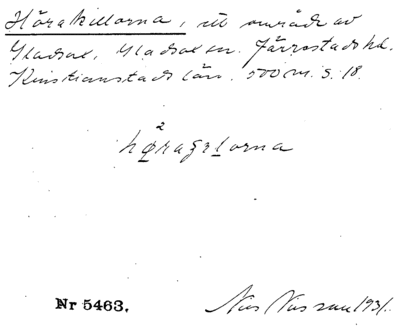 Hörakillorna, ett område av
Gladsax, Gladsax sn. Järrestads hd.
Kristianstads län. 500 m. S. 18.
2
høragɛlorna
Nr 5463.
Nils Nilsson 1931.